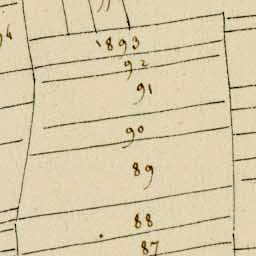 1893
92
91
90
89
88
87